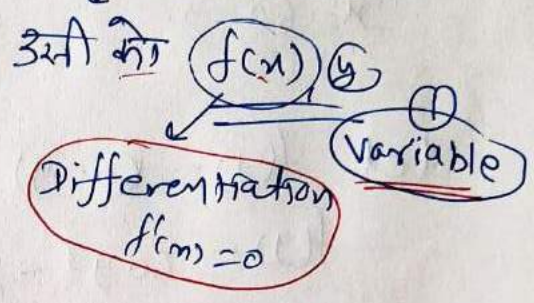 उसी को f(x) (y) ①
variable
Differentiation
f'(x) = 0